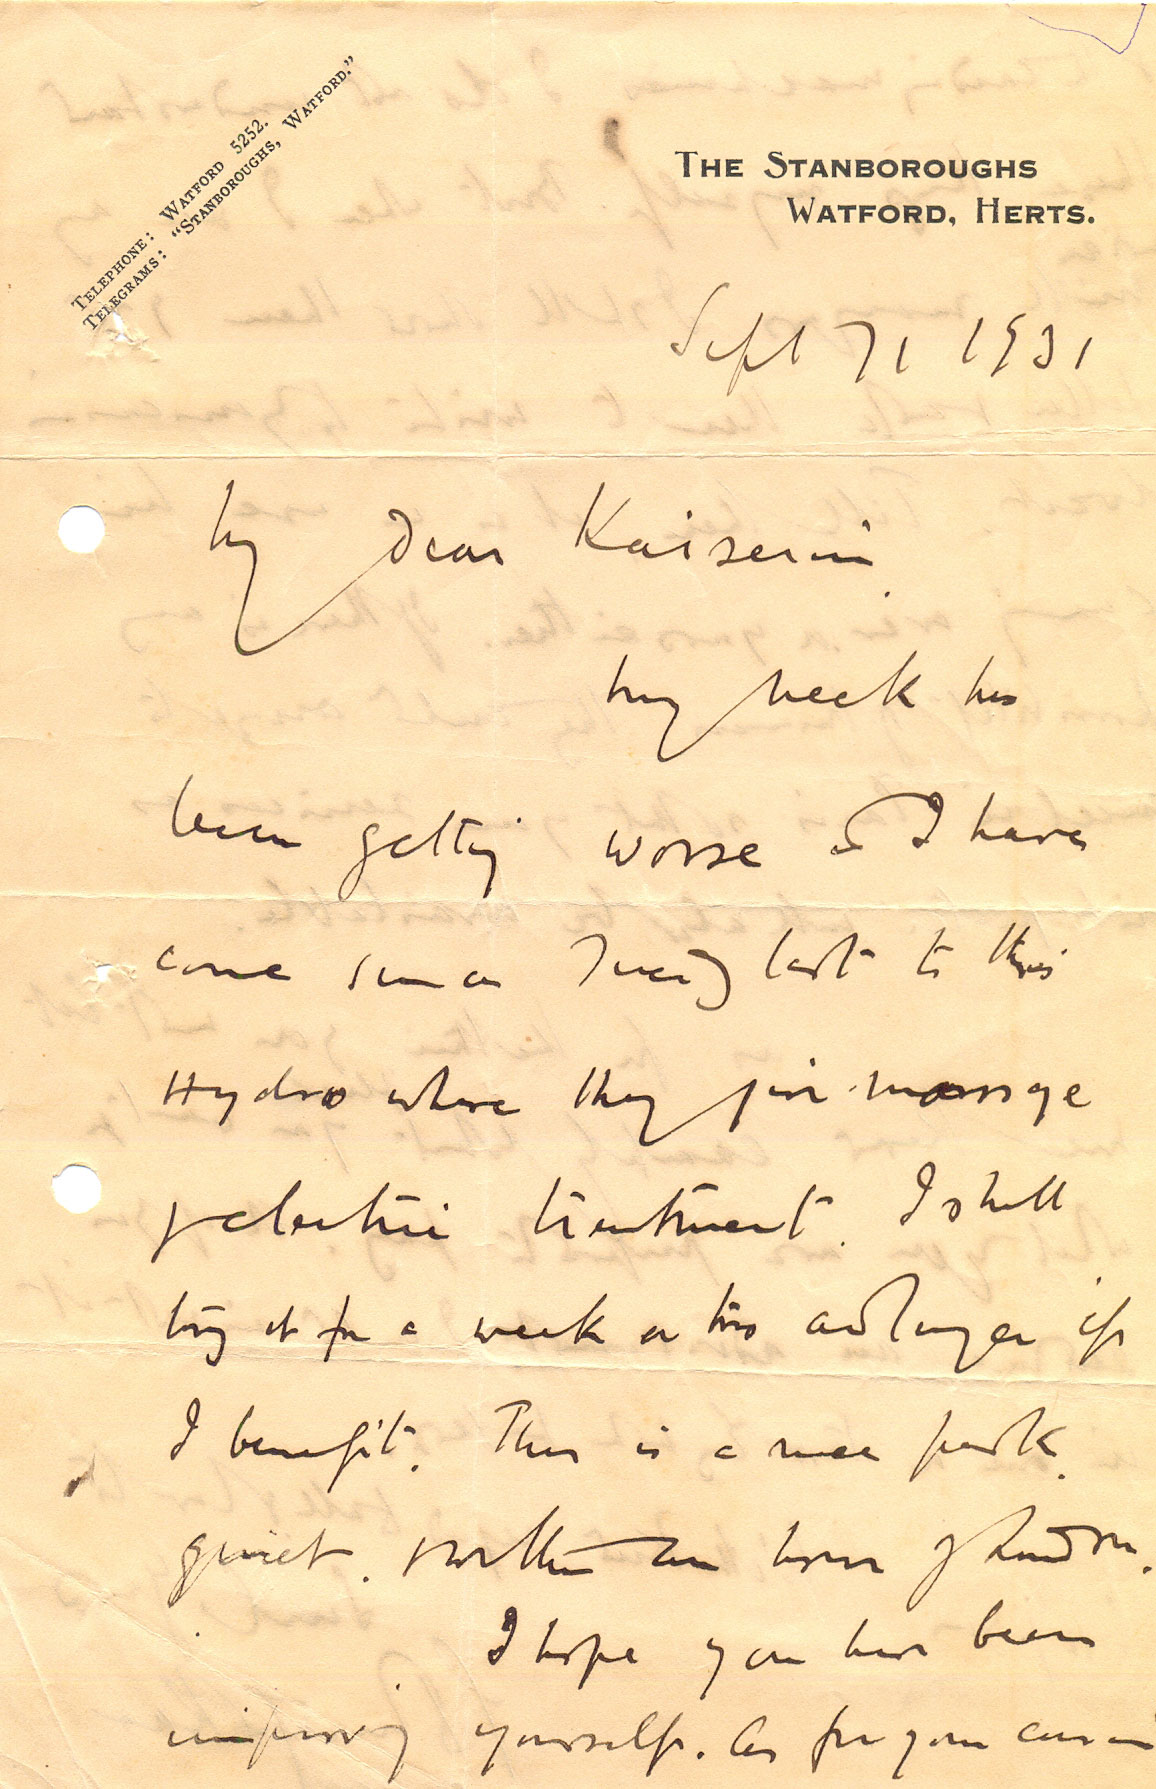 TELEPHONE: WATFORD 5252.
TELEGRAMS: "STANBOROUGHS, WATFORD."
THE STANBOROUGHS
WATFORD, HERTS.
Sept 7 1931
My dear Kaiserin
My neck has
been getting worse & I have
come since Tuesday last to this
Hydro where they give massage
& electric treatment. I shall
try it for a week or two and longer if
I benefit. This is a nice park.
quiet. & within an hour of London.
I hope you have been
improving yourself. As for your cousin